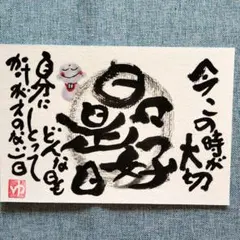 今この時が
大切
日々
是好
日
どんな日も
自分にとって
かけがえのない日
ゆ